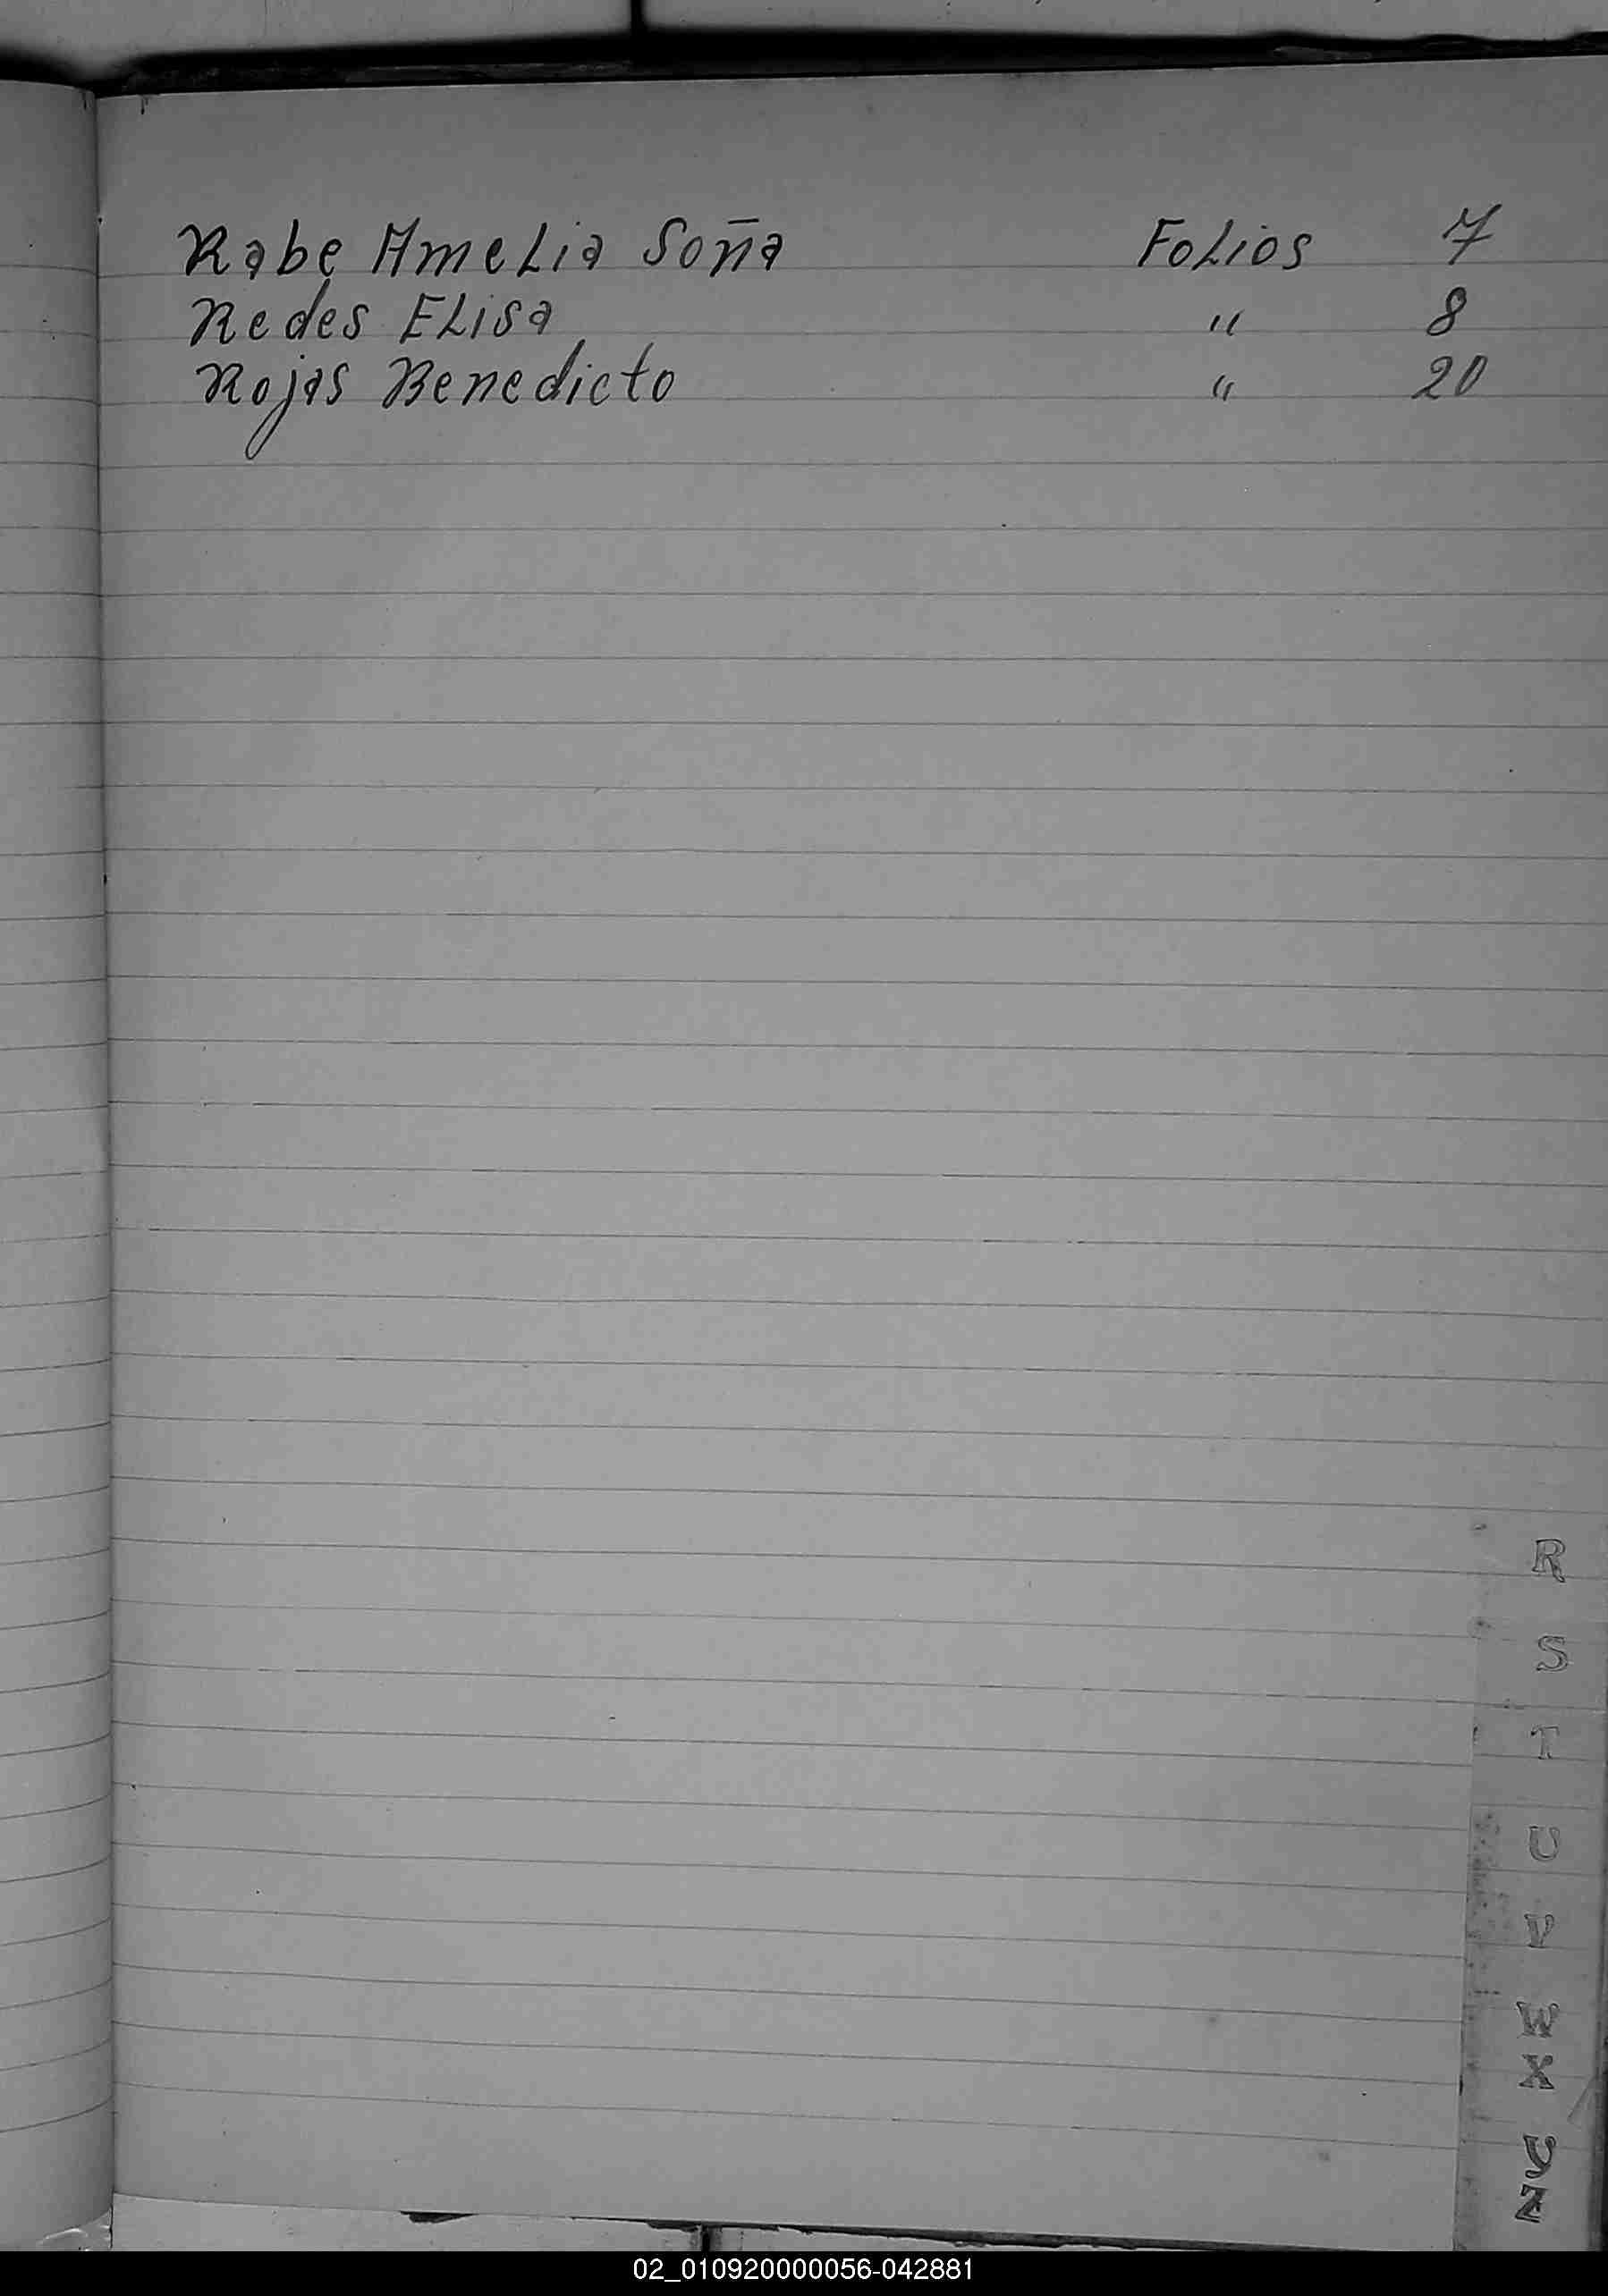 Rabe Amelia Soña Folios 7
Redes Elisa " 8
Rojas Benedicto " 20
R
S
T
U
V
W
X
Y
Z
02_010920000056-042881